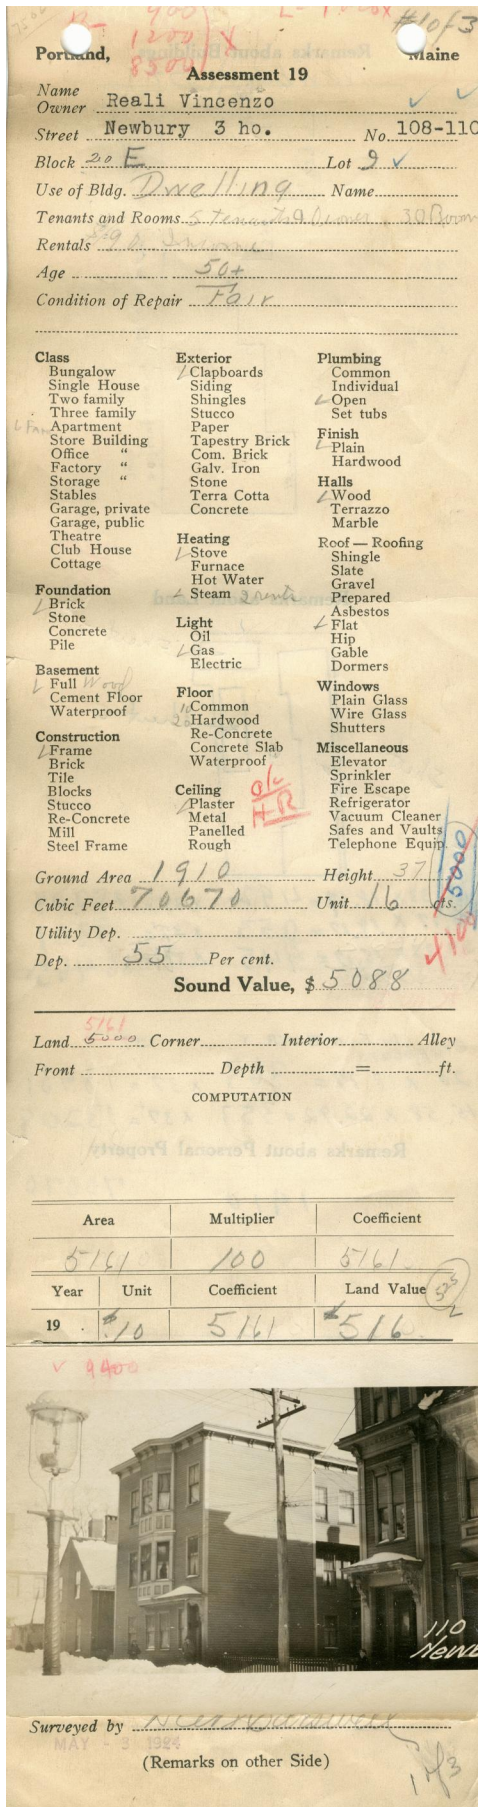 400
1200
8500
#1 of 3
Portland, Maine
Assessment 19
Name
Owner Reali Vincenzo
Street Newbury 3 ho. No. 108-110
Block 20 E Lot 9
Use of Bldg. Dwelling Name
Tenants and Rooms 5 tenants & Owner. 30 Room
Rentals Income
Age 50+
Condition of Repair Fair
Class
Bungalow
Single House
Two family
Three family
Apartment
Store Building
Office "
Factory "
Storage "
Stables
Garage, private
Garage, public
Theatre
Club House
Cottage
Foundation
Brick
Stone
Concrete
Pile
Basement
Full Wood
Cement Floor
Waterproof
Construction
Frame
Brick
Tile
Blocks
Stucco
Re-Concrete
Mill
Steel Frame
Exterior
Clapboards
Siding
Shingles
Stucco
Paper
Tapestry Brick
Com. Brick
Galv. Iron
Stone
Terra Cotta
Concrete
Heating
Stove
Furnace
Hot Water
Steam 2 rents
Light
Oil
Gas
Electric
Floor
10 Common
20 Hardwood
Re-Concrete
Concrete Slab
Waterproof
Ceiling
Plaster
Metal
Panelled
Rough
O/C
H-R
Plumbing
Common
Individual
Open
Set tubs
Finish
Plain
Hardwood
Halls
Wood
Terrazzo
Marble
Roof — Roofing
Shingle
Slate
Gravel
Prepared
Asbestos
Flat
Hip
Gable
Dormers
Windows
Plain Glass
Wire Glass
Shutters
Miscellaneous
Elevator
Sprinkler
Fire Escape
Refrigerator
Vacuum Cleaner
Safes and Vaults
Telephone Equip.
5000
Ground Area 1910 Height 37
Cubic Feet 70670 Unit 16 cts.
Utility Dep.
Dep. 55 Per cent.
Sound Value, $ 5088
5161
Land 5000 Corner Interior Alley
Front Depth = ft.
COMPUTATION
Area Multiplier Coefficient
5161 100 5161
Year Unit Coefficient Land Value
19 $.10 5161 $516
9400
110
Newb
Surveyed by
MAY - 3 1924
(Remarks on other Side)
1 of 3